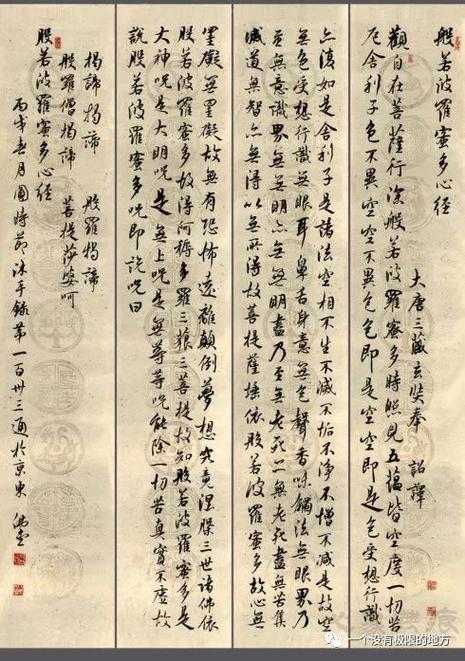 般若波羅蜜多心經
大唐三藏玄奘奉 詔譯
觀自在菩薩行深般若波羅蜜多時照見五蘊皆空度一切苦
厄舍利子色不異空空不異色色即是空空即是色受想行識
亦復如是舍利子是諸法空相不生不滅不垢不淨不增不減是故空
無色受想行識無眼耳鼻舌身意無色聲香味觸法無眼界乃
至無意識界無無明亦無無明盡乃至無老死亦無老死盡無苦集
滅道無智亦無得以無所得故菩提薩埵依般若波羅蜜多故心無
罣礙無罣礙故無有恐怖遠離顛倒夢想究竟涅槃三世諸佛依
般若波羅蜜多故得阿耨多羅三藐三菩提故知般若波羅蜜多是
大神咒是大明咒是無上咒是無等等咒能除一切苦真實不虛故
說般若波羅蜜多咒即說咒曰
揭諦揭諦 般羅揭諦
般羅僧揭諦 菩提莎婆呵
般若波羅蜜多心經
丙戌春月圓時節沐手錄第一百卅三通於京東
一个没有极限的地方